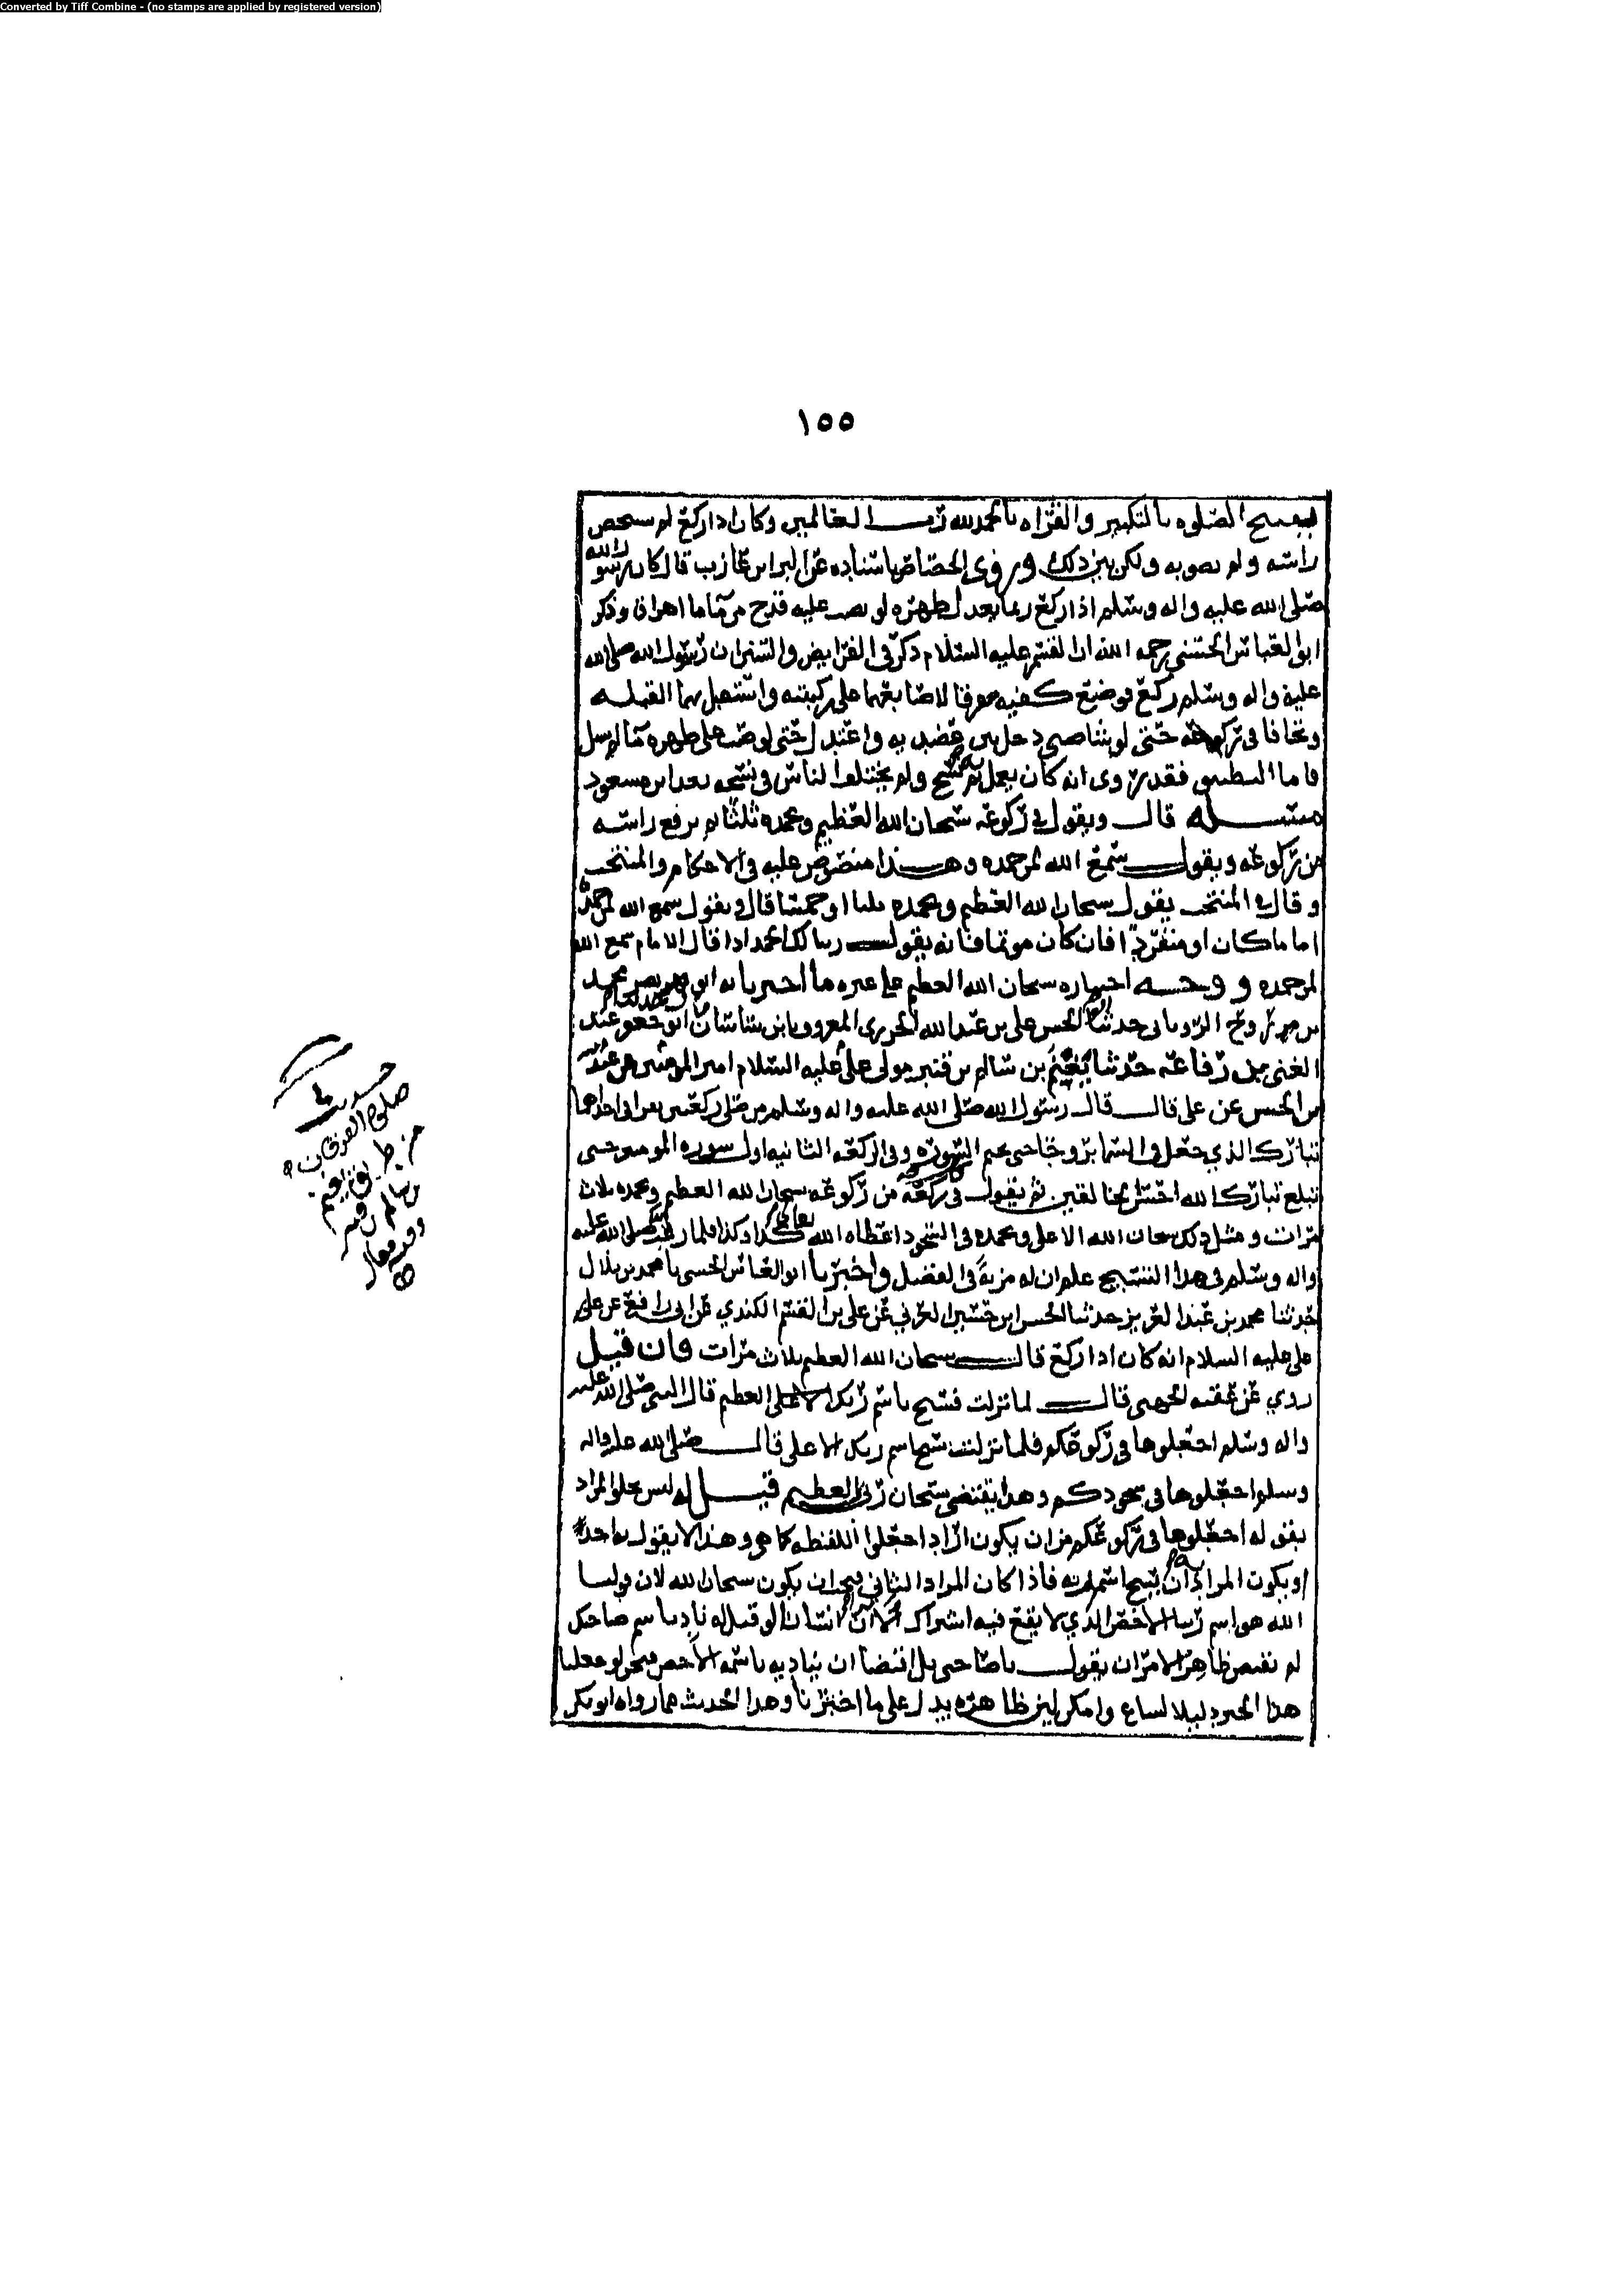 Converted by Tiff Combine - (no stamps are applied by registered version)
١٥٥
الصلوه بالتكبير والقراه بالحمد لله رب العالمين وكان اذا ركع لم يشخص
راسه ولم يصوبه ولكن بين ذلك وروى الجصاص باسناده عن البراء بن عازب قال كان رسول الله
صلى الله عليه واله وسلم اذا ركع لو صب عليه قدح من ما ما اهراق وذكر
ابو العباس الحسني رحمه الله ان القسم عليه السلام ذكر في الفرايض والسنن ان رسول الله صلى الله
عليه واله وسلم ركع فوضع كفيه مفرقا لاصابعهما على ركبتيه واستقبل بهما القبله
وتجافا في ركوعه حتى لو بين عضديه واعتدل حتى لو صب على ظهره ما لم يسل
فاما التطبيق فقد روى انه كان يعمل به ثم نسخ ولم يختلف الناس في نسخه بعد ابن مسعود
مسئله قال ويقول في ركوعه سبحان الله العظيم وبحمده ثلثا ثم يرفع راسه
من ركوعه ويقول سمع الله لمن حمده وهذا منصوص عليه في الاحكام والمنتخب
وقال في المنتخب يقول سبحان الله العظيم وبحمده ثلثا او خمسا قال ويقول سمع الله لمن حمده
اماما كان او منفردا فان كان موتما فانه يقول ربنا لك الحمد اذا قال الامام سمع الله
لمن حمده ووجه اختياره سبحان الله العظيم على غيره ما اخبرنا به ابو محمد
بن الروياني حدثنا الحسن علي بن عبدالله المعروف بابن ابو جعفر عبد
الغني بن رفاعه حدثنا يغنم بن سالم بن قنبر مولى علي عليه السلام امير المومنين عن
بن الحسن عن علي قال قال رسول الله صلى الله عليه واله وسلم من صلى ركعتين يقرا في احداهما
تبارك الذي جعل في السما بروجا حتى يختم السوره وفي الركعه الثانيه اول سوره المومنين حتى
تبلغ تبارك الله احسن الخالقين ثم يقول في كل ركعه من ركوعه سبحان الله العظيم وبحمده ثلاث
مرات ومثل ذلك سبحان الله الاعلى وبحمده في السجود اعطاه الله تعالى كذا وكذا فلما رغب صلى الله عليه
واله وسلم في هذا التسبيح علم ان له مزية في الفضل واخبرنا ابو العباس الحسني نا محمد بن بلال
حدثنا محمد بن عبد العزيز حدثنا الحسن ابن حسين العرني عن علي بن القسم الكندي عن ابي رافع عن علي
علي عليه السلام انه كان اذا ركع قال سبحان الله العظيم ثلاث مرات فان قيل
روي عن عقبه الجهني قال لما نزلت فسبح باسم ربك العظيم قال النبي صلى الله عليه
واله وسلم اجعلوها في ركوعكم فلما نزلت سبح اسم ربك الاعلى قال صلى الله عليه واله
وسلم اجعلوها في سجودكم وهذا يقتضي سبحان ربي العظيم قيل له ليس يخلو المراد
بقوله اجعلوها في ركوعكم من ان يكون اراد اجعلوا اللفظه كما هي وهذا لا يقول به احد
او يكون المراد ان يسبح باسم ربه فاذا كان المراد الثاني فيجب ان يكون سبحان الله لان قولنا
الله هو اسم ربنا الاخص الذي لا يقع فيه اشتراك الا ان انسانا لو قيل له ناد باسم صاحبك
لم يقتض ظاهر الامر ان يقول يا صاحبي بل اقتضا ان يناديه باسمه الاخص فنحن لو جعلنا
هذا الخبر دليلا لساغ وامكن لان ظاهره يدل على ما اخترنا وهذا الحديث مما رواه ابو بكر
حديث
صلوة الفرقان
من طريق يغنم
بن سالم بن قنبر
وفيه مقال